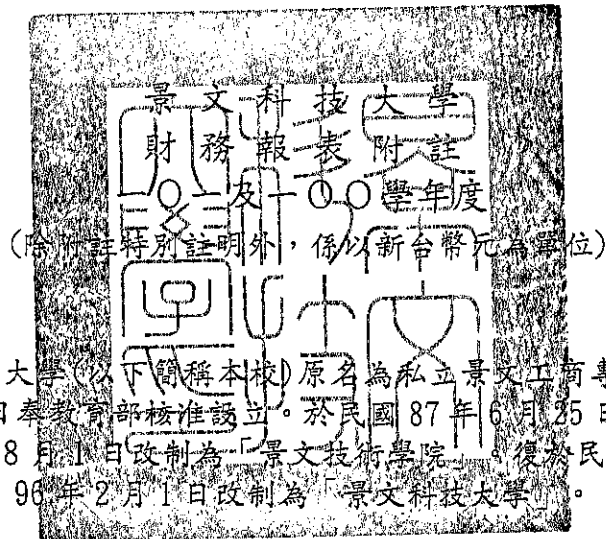 景文科技大學
財務報表附註
一〇一及一〇〇學年度
(除附註特別註明外，係以新台幣元為單位)
大學(以下簡稱本校)原名為私立景文工商專
日奉教育部核准設立。於民國 87 年 6 月 25 日
8 月 1 日改制為「景文技術學院」。復於民
96 年 2 月 1 日改制為「景文科技大學」。